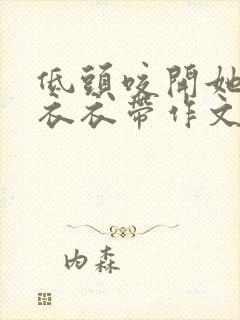 低頭咬開她
衣衣帶作文
內森